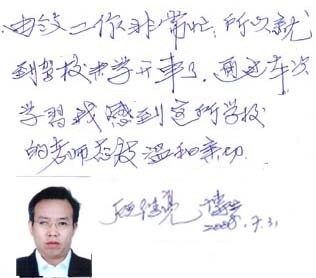 由于工作非常忙，所以就
到驾校来学开车了，通过本次
学習我感到这所学校
的老师态度温和亲切
2008.7.31